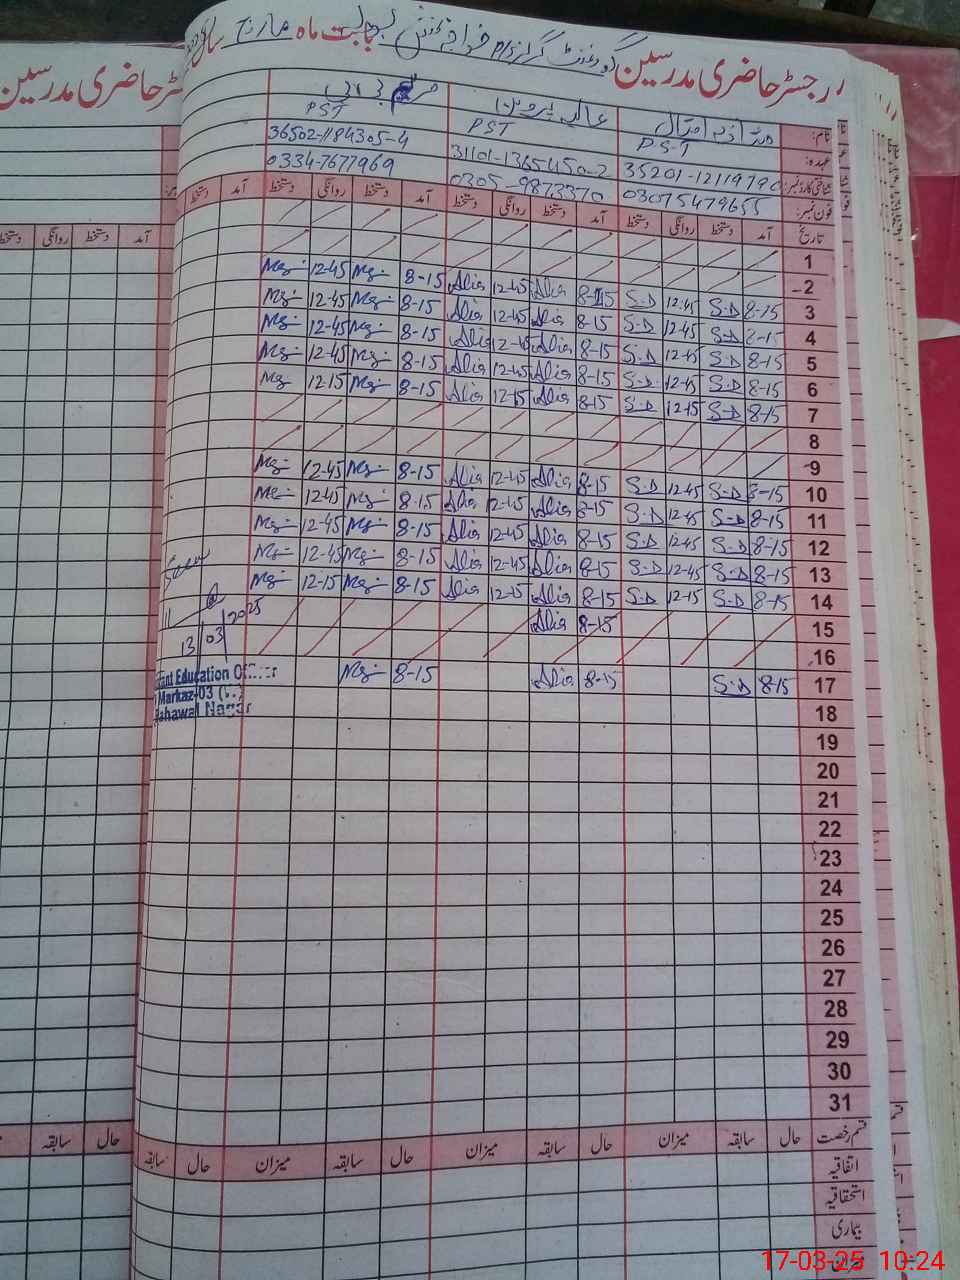 رجسٹر حاضری مدرسین گورنمنٹ گرلز بابت ماہ مارچ سال
نام: عالیہ پروین
عہدہ: PST PST PST
شناختی کارڈ نمبر: 35201-1211979 31101-1365450-2 36502-1184305-4
فون نمبر: 03075479655 0305-9873370 0334-7677969
تاریخ آمد دستخط روانگی دستخط آمد دستخط روانگی دستخط آمد دستخط روانگی دستخط آمد دستخط
1
2
3 8-15 S.D 12-45 S.D 8-15 Alia 12-45 Alia 8-15 Mg 12-45 Mg
4 8-15 S.D 12-45 S.D 8-15 Alia 12-45 Alia 8-15 Mg 12-45 Mg
5 8-15 S.D 12-45 S.D 8-15 Alia 12-45 Alia 8-15 Mg 12-45 Mg
6 8-15 S.D 12-15 S.D 8-15 Alia 12-45 Alia 8-15 Mg 12-45 Mg
7 8-15 S.D 12-15 S.D 8-15 Alia 12-15 Alia 8-15 Mg 12-15 Mg
8
9
10 8-15 S.D 12-45 S.D 8-15 Alia 12-45 Alia 8-15 Mg 12-45 Mg
11 8-15 S.D 12-45 S.D 8-15 Alia 12-45 Alia 8-15 Mg 12-45 Mg
12 8-15 S.D 12-45 S.D 8-15 Alia 12-45 Alia 8-15 Mg 12-45 Mg
13 8-15 S.D 12-45 S.D 8-15 Alia 12-45 Alia 8-15 Mg 12-45 Mg
14 8-15 S.D 12-15 S.D 8-15 Alia 12-15 Alia 8-15 Mg 12-15 Mg
15 8-15 Alia
16
17 8-15 S.D 8-15 Alia 8-15 Mg
13/03/2025
Education Officer
Markaz-03
Bahawal Nagar
18
19
20
21
22
23
24
25
26
27
28
29
30
31
قسم رخصت حال سابقہ میزان حال سابقہ میزان حال سابقہ میزان حال سابقہ
اتفاقیہ
استحقاقیہ
بیماری
رجسٹر حاضری مدرسین
آمد دستخط روانگی دستخط
حال سابقہ
17-03-25 10:24